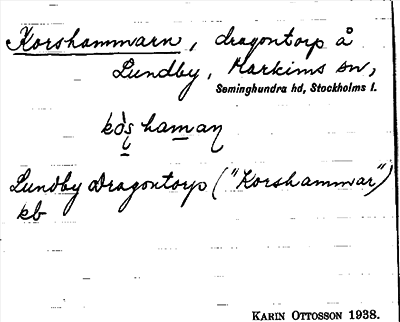 Korshammarn, dragontorp å
Lundby, Markims sn,
Seminghundra hd, Stockholms l.
Lundby Dragontorp ("Korshammar")
kb
KARIN OTTOSSON 1938.